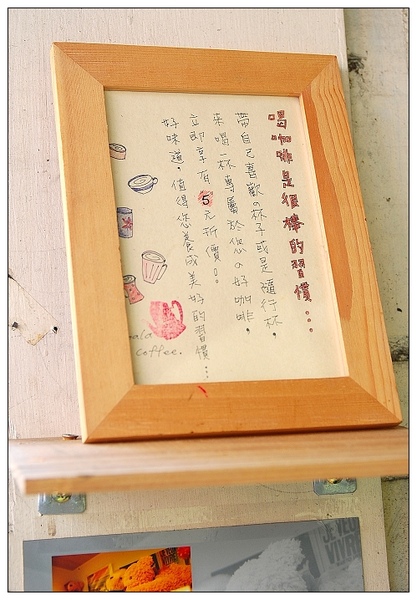 喝咖啡是很棒的習慣...
帶自己喜歡の杯子或是隨行杯，
來喝一杯專屬於您の好咖啡，
立即享有5元折價!!
好味道，值得您養成美好的習慣...
ala
coffee.
JE VEUX
VIVRE